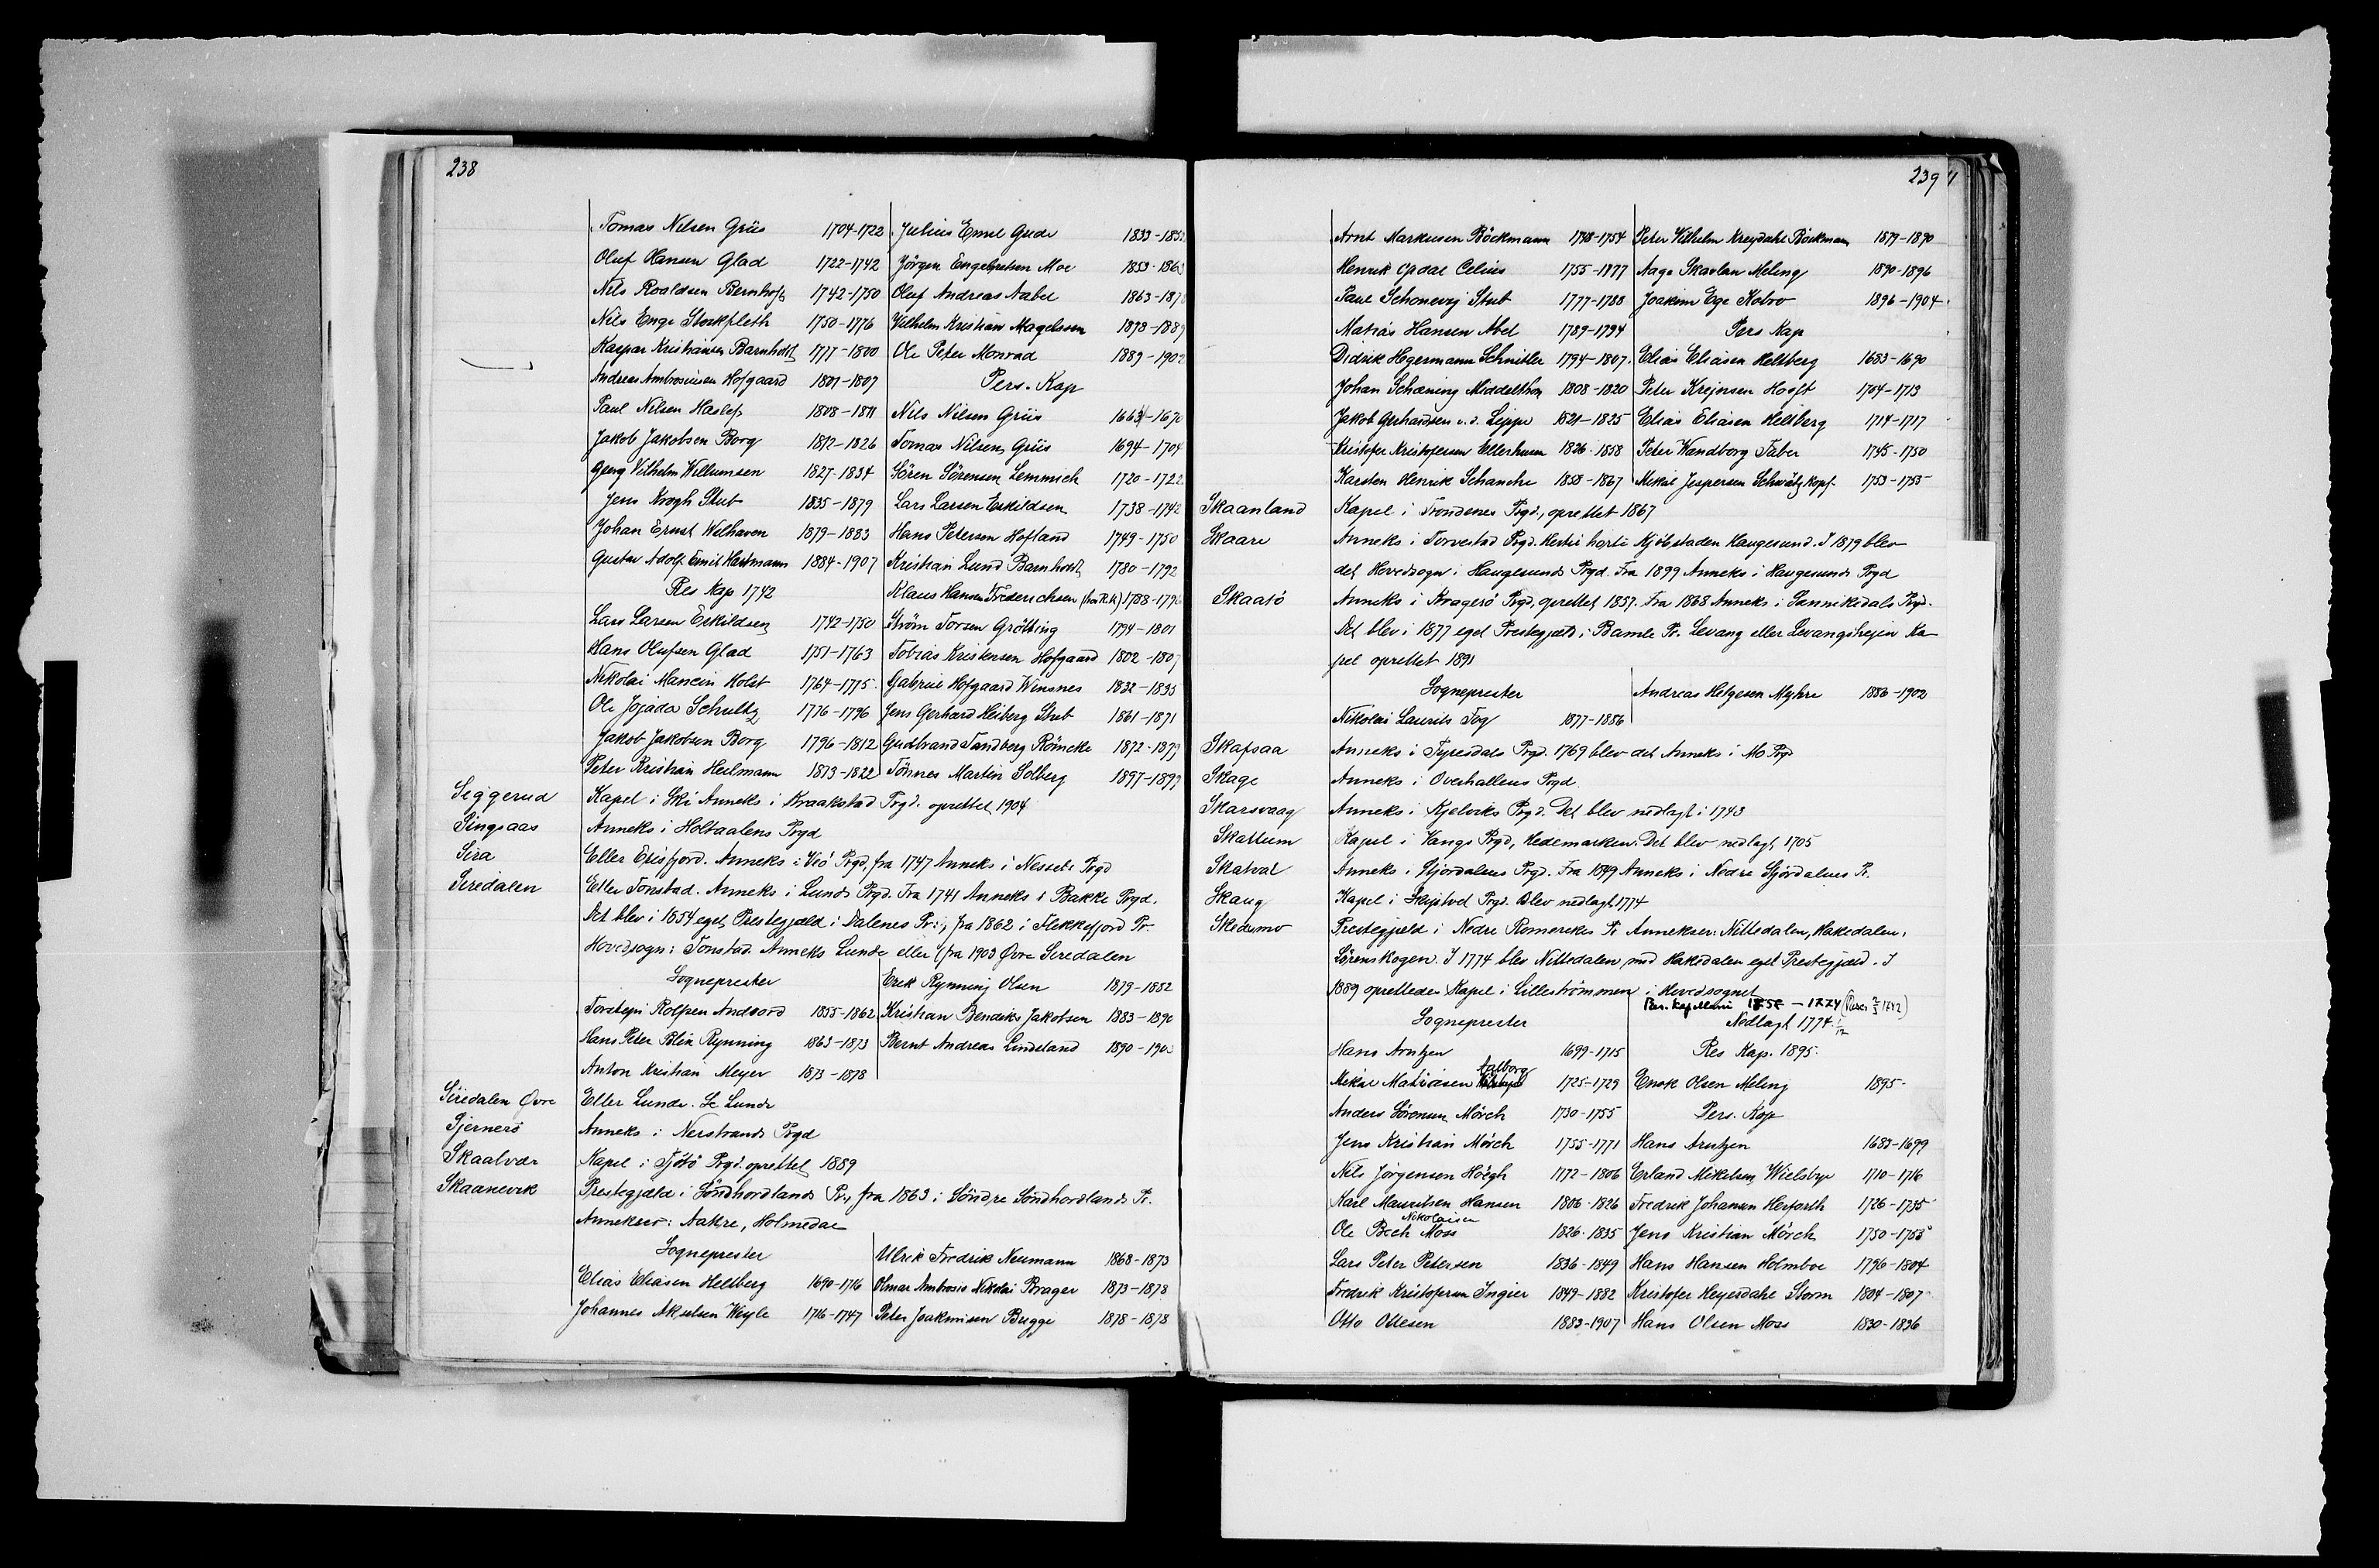 238
Tomas Nilsen Grüs 1704-1722
Oluf Hansen Glad 1722-1742
Nils Roaldsen Bernhoft 1742-1750
Nils Enge Stockfleth 1750-1776
Kaspar Kristiansen Barnholdt 1777-1800
Andreas Ambrosiusen Hofgaard 1801-1807
Paul Nilsen Haslef 1808-1811
Jakob Jakobsen Borg 1812-1826
Georg Vilhelm Willumsen 1827-1834
Jens Krogh Stub 1835-1879
Johan Ernst Welhaven 1879-1883
Gustav Adolf Emil Hartmann 1884-1907
Res Kap 1742
Lars Larsen Eskildsen 1742-1750
Hans Olufsen Glad 1751-1763
Nikolai Mancin Holst 1764-1775
Ole Jojada Schultz 1776-1796
Jakob Jakobsen Borg 1796-1812
Peter Kristian Heilmann 1813-1822
Julius Emil Gude 1833-185
Jörgen Engebretsen Moe 1853-1863
Oluf Andreas Aabel 1863-187
Vilhelm Kristian Magelssen 1878-1889
Ole Peter Monrad 1889-1902
Pers. Kap
Nils Nilsen Grüs 1664-1670
Tomas Nilsen Grüs 1694-1704
Sören Sörensen Lemmich 1720-1722
Lars Larsen Eskildsen 1738-1742
Hans Petersen Hofland 1749-1750
Kristian Lund Barnholdt 1780-1792
Klaus Hansen Frederichsen (hos R.K.) 1788-179
Ström Torsen Grötting 1794-1801
Tobias Kristensen Hofgaard 1802-1807
Gabriel Hofgaard Winsnes 1832-1835
Jens Gerhard Heiberg Stub 1861-1871
Gudbrand Tandberg Römcke 1872-1879
Tönnes Martin Solberg 1897-1899
Siggerud Kapel i Ski Anneks i Kraakstad Prgd. oprettet 1904
Singsaas Anneks i Holtaalens Prgd
Sira Eller Erisfjord. Anneks i Veö Prgd, fra 1747 Anneks i Nessets Prgd
Siredalen Eller Tonstad. Anneks i Lunds Prgd. Fra 1741 Anneks i Bakke Prgd.
Det blev i 1854 eget Prestegjæld i Dalenes Pr., fra 1862 i Flekkefjord Pr.
Hovedsogn: Tonstad. Anneks Lunde eller (fra 1903 Övre Siredalen
Sogneprester
Torstein Rolfsen Andvord 1855-1862
Hans Peter Blix Rynning 1863-1873
Anton Kristian Meyer 1873-1878
Erik Rynning Olsen 1879-1882
Kristian Bendiks Jakobsen 1883-1890
Bernt Andreas Lindeland 1890-190
Siredalen Övre Eller Lunde. Se Lunde
Sjernerö Anneks i Nerstrands Prgd
Skaalvær Kapel i Tjötö Prgd. oprettet 1889
Skaanevik Prestegjæld i Söndhordlands Pr., fra 1863 i Söndre Söndhordlands Pr.
Annekser: Aakre, Holmedal
Sogneprester
Elias Eliasen Heltberg 1690-1716
Johannes Akselsen Weyle 1716-1747
Ulrik Fredrik Neumann 1868-1873
Olmar Ambrosio Nikolai Prager 1873-1878
Peter Joakimsen Brügge 1878-1878
239
Arnt Markusen Böckmann 1748-1754
Henrik Opdal Celius 1755-1777
Paul Schonevig Stub 1777-1788
Matias Hansen Abel 1789-1794
Didrik Hegermann Schnitler 1794-1807
Johan Schæning Middelthon 1808-1820
Jakob Gerhardsen v.d. Lippe 1821-1825
Kristofer Kristofersen Ellerhusen 1826-1858
Karsten Henrik Schanche 1858-1867
Peter Vilhelm Kreydahl Böckmann 1879-1890
Aage Skavlan Meling 1890-1896
Joakim Ege Kobro 1896-1904
Pers Kap
Elias Eliasen Heltberg 1683-1690
Peter Krejnsen Hooft 1704-1713
Elias Eliasen Heltberg 1714-1717
Peter Wandborg Faber 1745-1750
Mikal Jespersen Schwätzkopf 1753-1755
Skaanland Kapel i Trondenes Prgd., oprettet 1867
Skaare Anneks i Torvestad Prgd. Hertil hörte Kjöbstaden Haugesund. I 1879 blev
det Hovedsogn i Haugesunds Prgd. Fra 1899 Anneks i Haugesunds Prgd
Skaatö Anneks i Kragerö Prgd, oprettet 1857. Fra 1868 Anneks i Sannikedals Prgd.
Det blev i 1877 eget Prestegjæld i Bamle Pr. Levang eller Levangsheien Ka-
pel oprettet 1891
Sogneprester
Nikolai Laurits Fog 1877-1886
Andreas Helgesen Myhre 1886-1902
Skafsaa Anneks i Tyresdals Prgd. 1769 blev det Anneks i Mo Prgd
Skage Anneks i Overhallens Prgd
Skarsvaag Anneks i Kjelviks Prgd. Det blev nedlagt i 1743
Skattum Kapel i Vangs Prgd, Hedemarken. Det blev nedlagt 1705
Skatval Anneks i Stjördalens Prgd. Fra 1849 Anneks i Nedre Stjördalens Pr.
Skaug Kapel i Skiptvet Prgd. Blev nedlagt 1774
Skedsmo Prestegjæld i Nedre Romerikes Pr Annekser: Nittedalen, Hakedalen,
Sörenskogen. I 1774 blev Nittedalen med Hakedalen eget Prestegjæld. I
1889 oprettedes Kapel i Lilleströmmen i Hovedsognet
Sogneprester
Hans Arntzen 1699-1715
Mikal Matiasen Aalborg 1725-1729
Anders Sörensen Mörch 1730-1755
Jens Kristian Mörch 1755-1771
Nils Jörgensen Höegh 1772-1806
Karl Mauritsen Hansen 1806-1826
Ole Nikolaisen Bech Moss 1826-1835
Lars Peter Petersen 1836-1849
Fredrik Kristofersen Ingier 1849-1882
Otto Ottesen 1883-1907
Per. Kapellani - 1774
Nedlagt 1774
Res Kap. 1895.
Enok Olsen Meling 1895-
Pers. Kap
Hans Arntzen 1683-1699
Erland Mikelsen Wielsbye 1710-1716
Fredrik Johansen Herforth 1726-1735
Jens Kristian Mörch 1750-1755
Hans Hansen Holmboe 1796-1804
Kristofer Heyerdahl Storm 1804-1807
Hans Olsen Moss 1830-1836